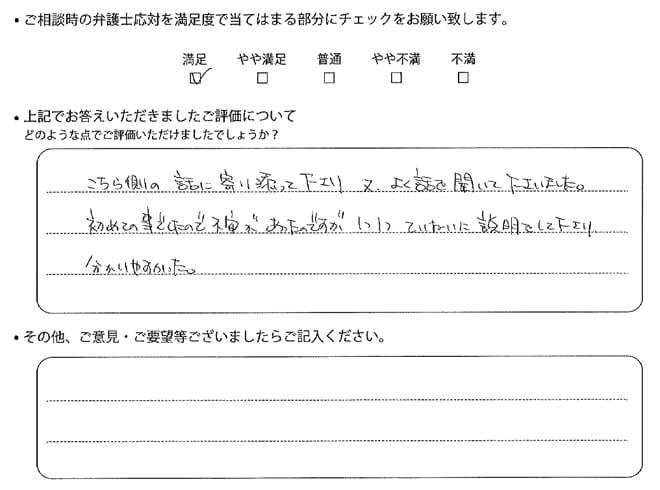 ・ご相談時の弁護士応対を満足度で当てはまる部分にチェックをお願い致します。
満足 やや満足 普通 やや不満 不満
・上記でお答えいただきましたご評価について
どのような点でご評価いただけましたでしょうか？
こちら側の話に寄り添って下さり又、よく話を聞いて下さいました。
初めての事でしたので不安があったのですが 1つ1つ ていねいに説明をして下さり
分かりやすかった。
・その他、ご意見・ご要望等ございましたらご記入ください。